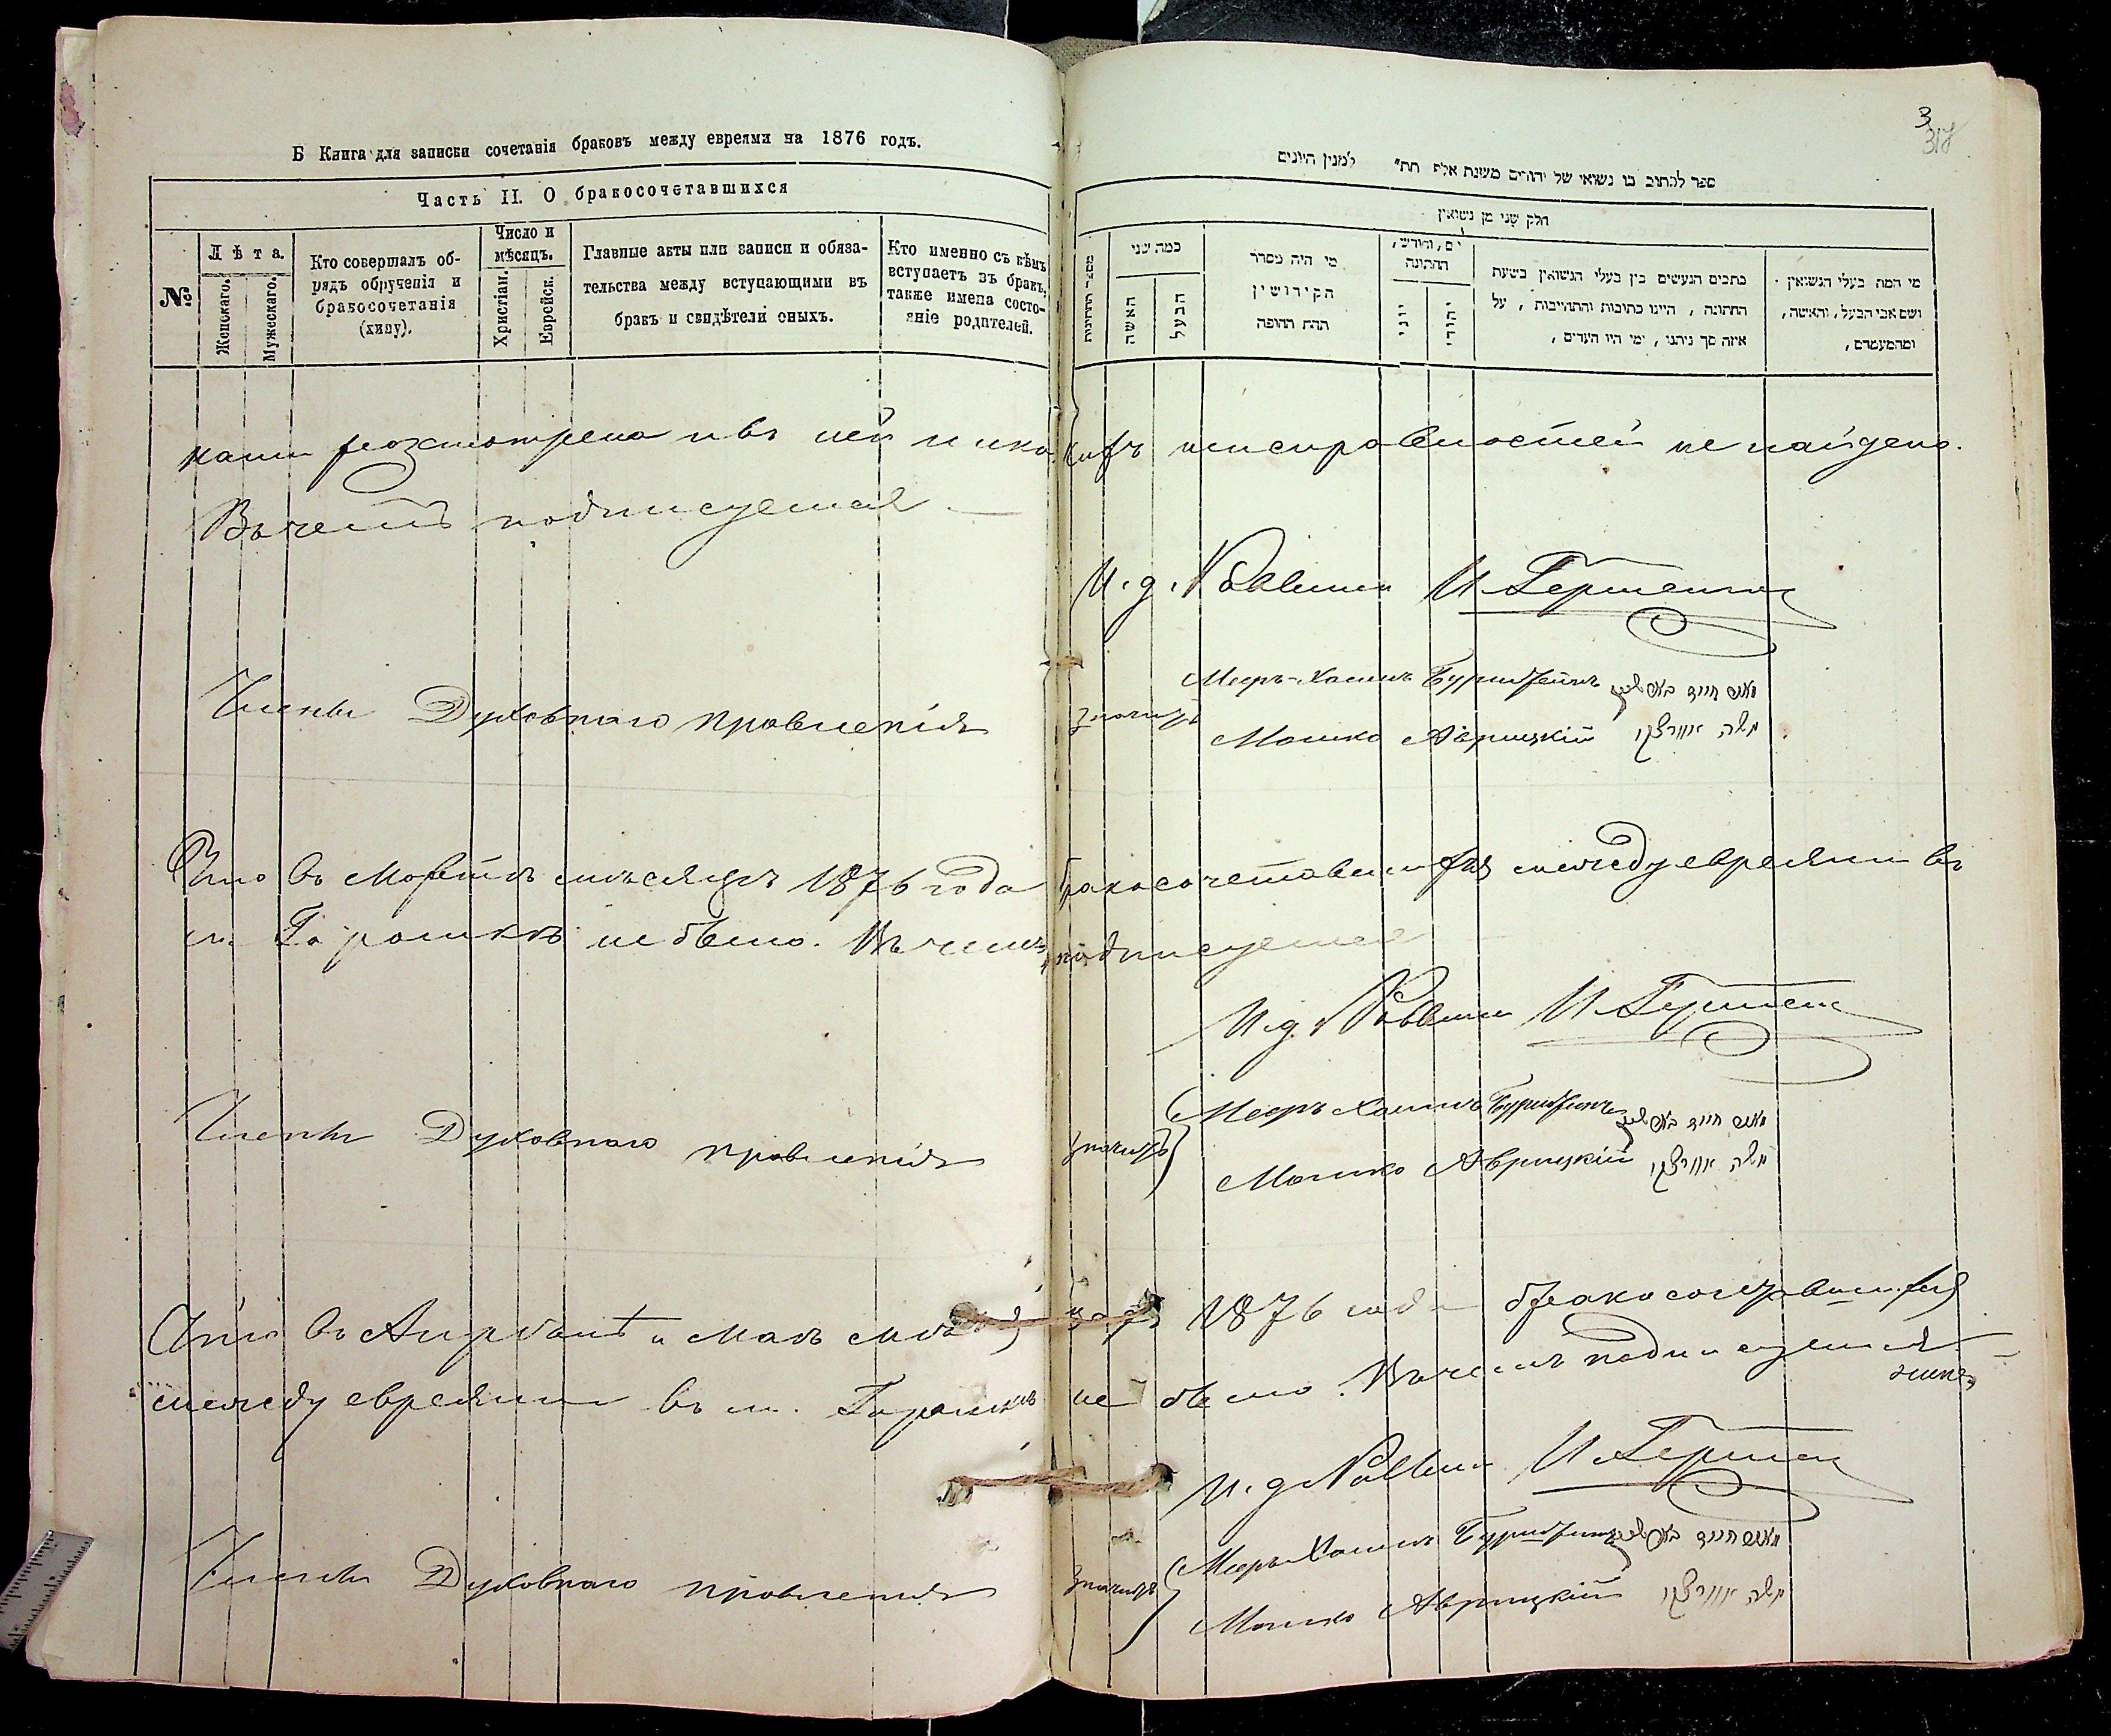 Б Книга для записки сочетанія браковъ между евреями на 1876 годъ.
Часть II. О бракосочетавшихся
№
Лѣта.
Женскаго.
Мужескаго.
Кто совершалъ об-
рядъ обрученія и
бракосочетанія
(хипу).
Число и
мѣсяцъ.
Христіан.
Еврейск.
Главные акты или записи и обяза-
тельства между вступающими въ
бракъ и свидѣтели оныхъ.
Кто именно съ кѣмъ
вступаетъ въ бракъ,
также имена состо-
яніе родителей.
3
318
ספר לכתוב בו נשואי של יהודים משנת אלף תת״ למנין היונים
חלק שני מן נשואין
מספר החתונות
כמה שני
האשה
הבעל
מי היה מסדר
הקידושין
תחת החופה
יום, וחודש,
החתונה
יוני
יהודי
כתבים הנעשים בין בעלי הנשואין בשעת
החתונה, היינו כתובות והתחייבות, על
איזה סך ניתנו, ומי היו העדים,
מי המה בעלי הנשואין
ושם אבי הבעל, והאשה,
ומהמעמדם,
нами разсмотрена и въ ней никакихъ неисправностей не найдено.
Въ чемъ подписуемся
И. д. Раввина И. Гершен
Члены Духовнаго правленія
значитъ
Мееръ-Хаимъ Бурштейнъ מאיר חיים בורשטיין
Мошко Аврицкій משה אווריצקי
Что въ Мартѣ мѣсяцѣ 1876 года бракосочетавшихся между евреями въ
м. Горошкѣ не было. Въ чемъ подписуемся
И. д. Раввина И. Гершен
Члены Духовнаго правленія
значитъ
Мееръ Хаимъ Бурштейнъ מאיר חיים בורשטיין
Мошко Аврицкій משה אווריצקי
Что въ Апрѣлѣ и Маѣ мѣсяцѣ 1876 года бракосочетавшихся
между евреями въ м. Горошкѣ не было. Въ чемъ подписуемся
И. д. Раввина И. Гершен
Члены Духовнаго правленія
значитъ
Мееръ Хаимъ Бурштейнъ מאיר חיים בורשטיין
Мошко Аврицкій משה אווריצקי